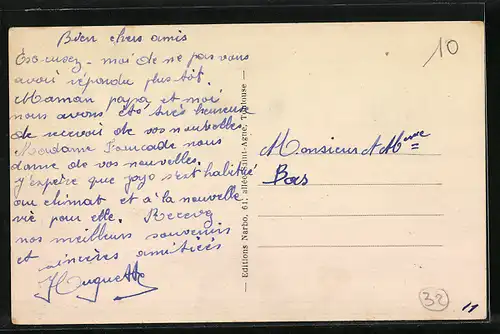 Bien chers amis
Excusez-moi de ne pas vous
avoir répondu plus tôt.
Maman papa et moi
nous avons été très heureux
de recevoir de vos nouvelles
Madame Fourcade nous
donne de vos nouvelles.
J'espère que jojo s'est habitué
au climat et à la nouvelle
vie pour elle. Recevez
nos meilleurs souvenirs
et sincères amitiés
Huguette
— Editions Narbo, 61, allée Saint-Agne, Toulouse —
10
Monsieur & Mme
Bos
32
11